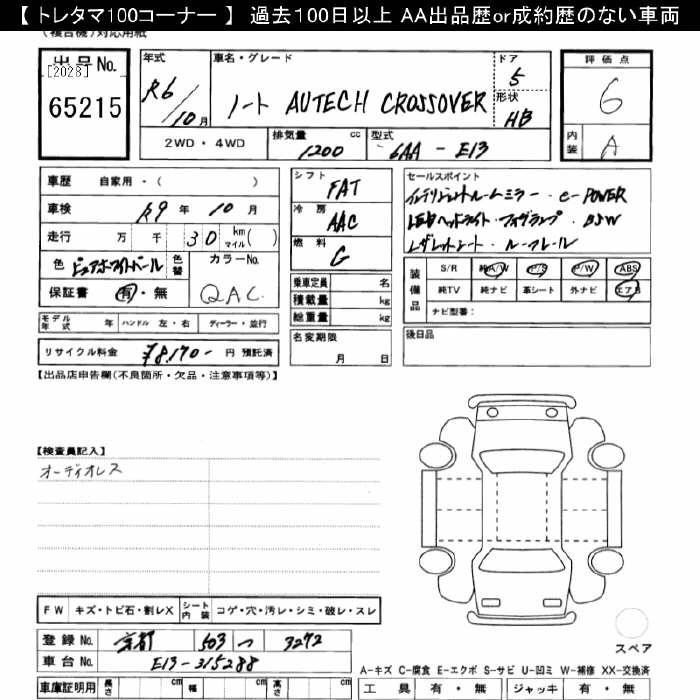 【 トレタマ100コーナー 】 過去100日以上 AA出品歴or成約歴のない車両
(複合機)対応用紙
出品No.
[2028]
65215
年式
R6/10月
車名・グレード
ノート AUTECH CROSSOVER
ドア
5
形状
HB
評価点
6
内装
A
2WD・4WD
排気量 cc
1200
型式
6AA - E13
車歴 自家用・( )
車検 R9年 10月
走行 万 千 30 km マイル ( )
色 ピュアホワイトパール 色替
カラーNo.
QAC
保証書 有・無
シフト FAT
冷房 AAC
燃料 G
乗車定員 名
積載量 kg
総重量 kg
名変期限
月 日
セールスポイント
インテリジェントルームミラー・e-POWER
LEDヘッドライト・フォグランプ・BSW
レザレットシート・ルーフレール
装備品
S/R 純A/W P/S P/W ABS
純TV 純ナビ 革シート 外ナビ エアB
ナビ型番:
後日品
モデル年式 年 ハンドル 左・右 ディーラー・並行
リサイクル料金 ¥8,170- 円 預託済
【出品店申告欄(不良箇所・欠品・注意事項等)】
【検査員記入】
オーディオレス
FW キズ・トビ石・割レX シート内装 コゲ・穴・汚レ・シミ・破レ・スレ
登録No. 京都 503 つ 3272
車台No. E13-315288
車庫証明用 長さ cm 幅 cm 高さ cm
スペア
A-キズ C-腐食 E-エクボ S-サビ U-凹ミ W-補修 XX-交換済
工具 有・無 ジャッキ 有・無